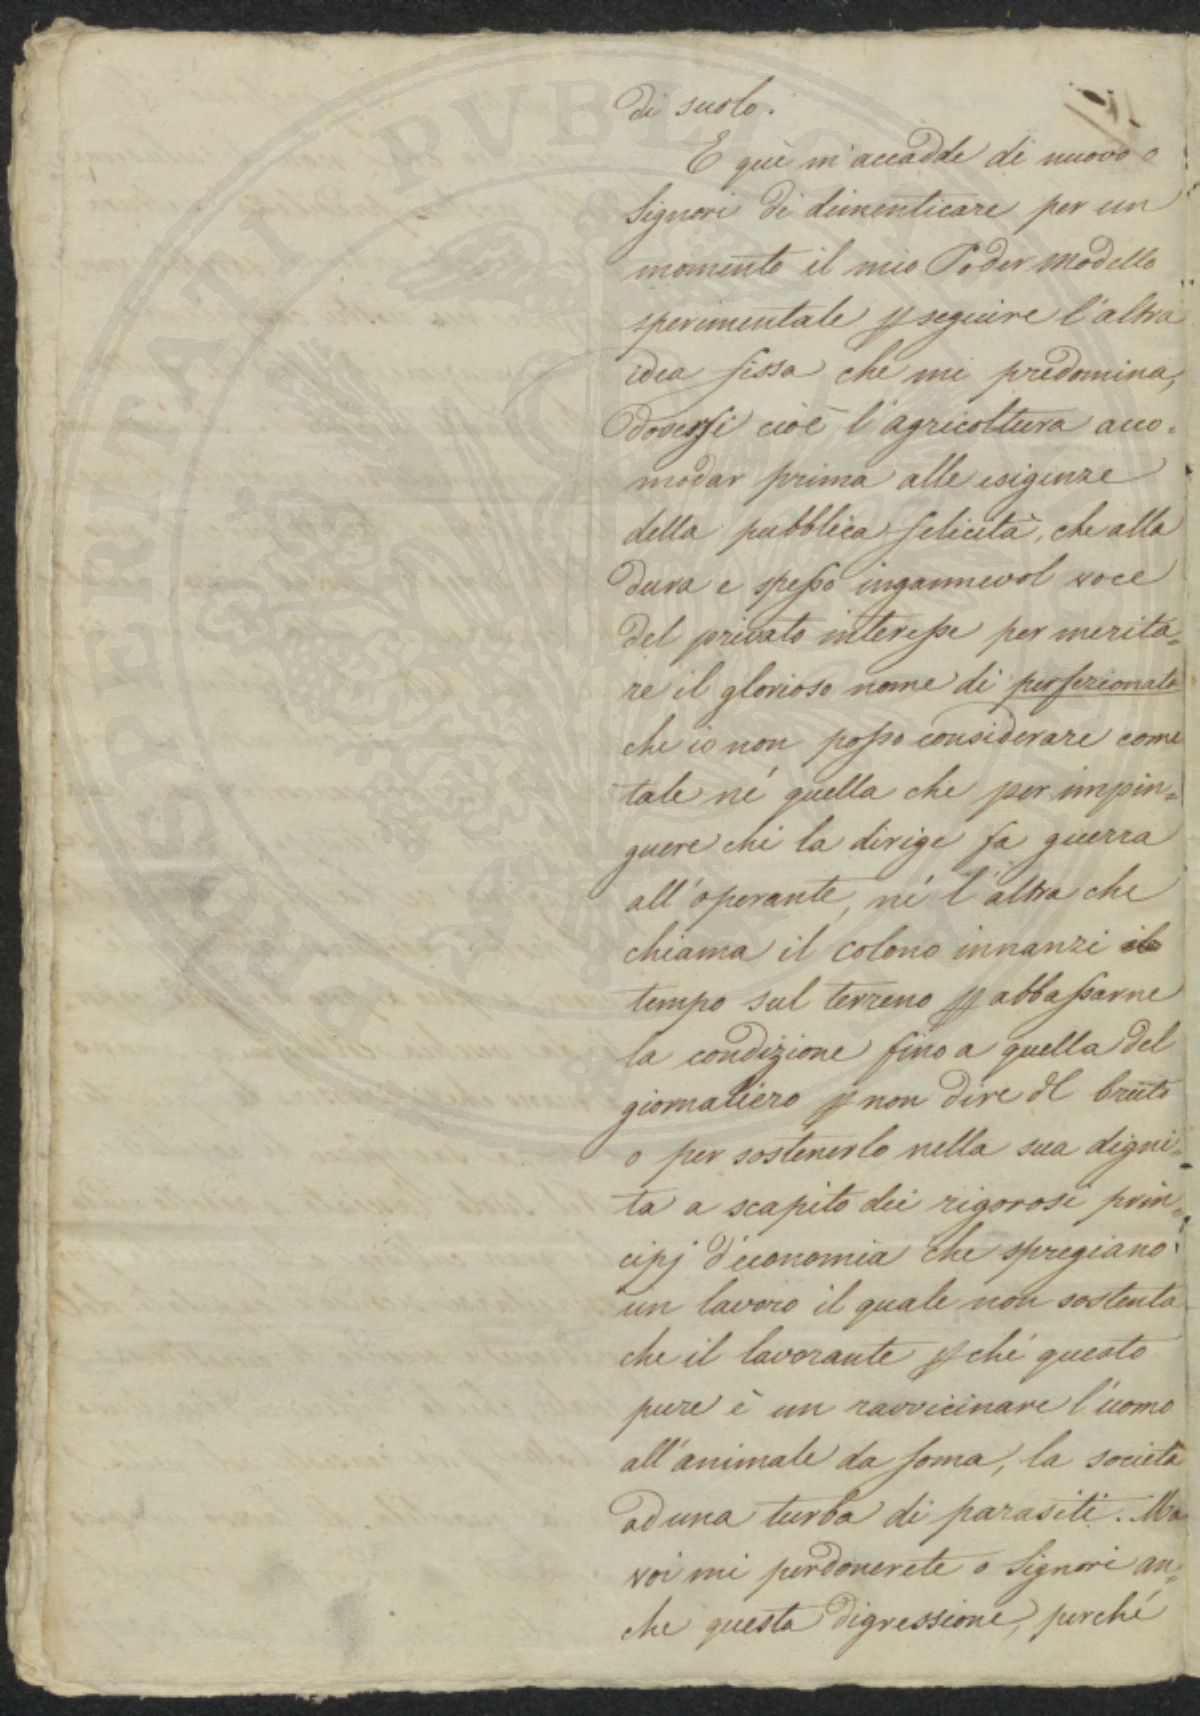 di suolo.
E quì m'accadde di nuovo o
Signori di dimenticare per un
momento il mio Poder modello
sperimentale p seguire l'altra
idea fissa che mi predomina,
dovessi cioè l'agricoltura acco-
modar prima alle esigenze
della pubblica felicità, che alla
dura e spesso ingannevol voce
del privato interesse per merita=
re il glorioso nome di perfezionata
che io non posso considerare come
tale né quella che per impin=
guere chi la dirige fa guerra
all'operante, né l'altra che
chiama il colono innanzi
tempo sul terreno p abbassarne
la condizione fino a quella del
giornaliero p non dire dl bruto
o per sostenerlo nella sua digni=
ta a scapito dei rigorosi prin=
cipj d'economia che spregiano
un lavoro il quale non sostenta
che il lavorante pché questo
pure è un ravvicinare l'uomo
all'animale da soma, la società
ad una turba di parasiti. Ma
voi mi perdonerete o Signori an=
che questa digressione, perché
PROSPERITATI PVBLICAE